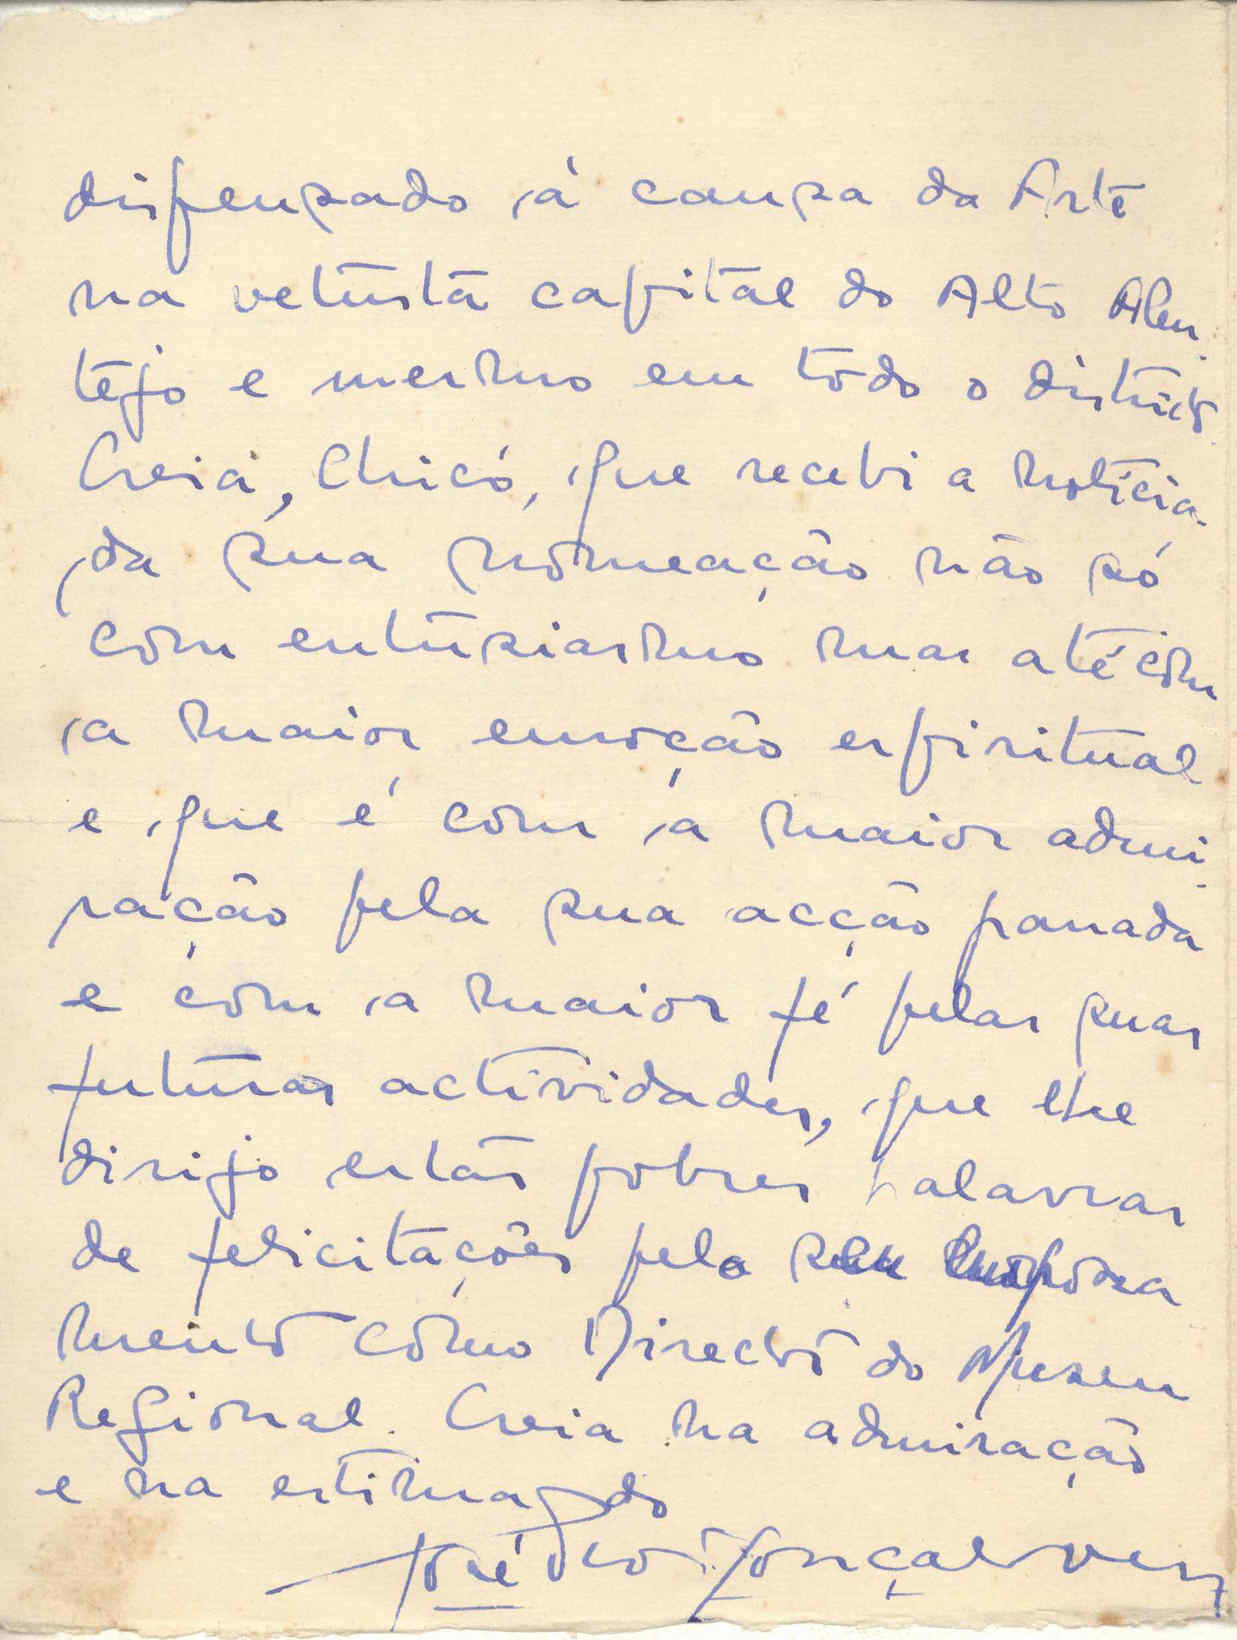 dispensado à causa da Arte
na vetusta capital do Alto Alen-
tejo e mesmo em todo o distrito.
Creia, Chicó, que recebi a notícia
da sua nomeação não só
com entusiasmo mas até com
a maior emoção espiritual
e que é com a maior admi-
ração pela sua acção passada
e com a maior fé pelas suas
futuras actividades, que lhe
dirijo estas pobres palavras
de felicitações pelo seu
mento como Director do Museu
Regional. Creia na admiração
e na estima do
José Gonçalves